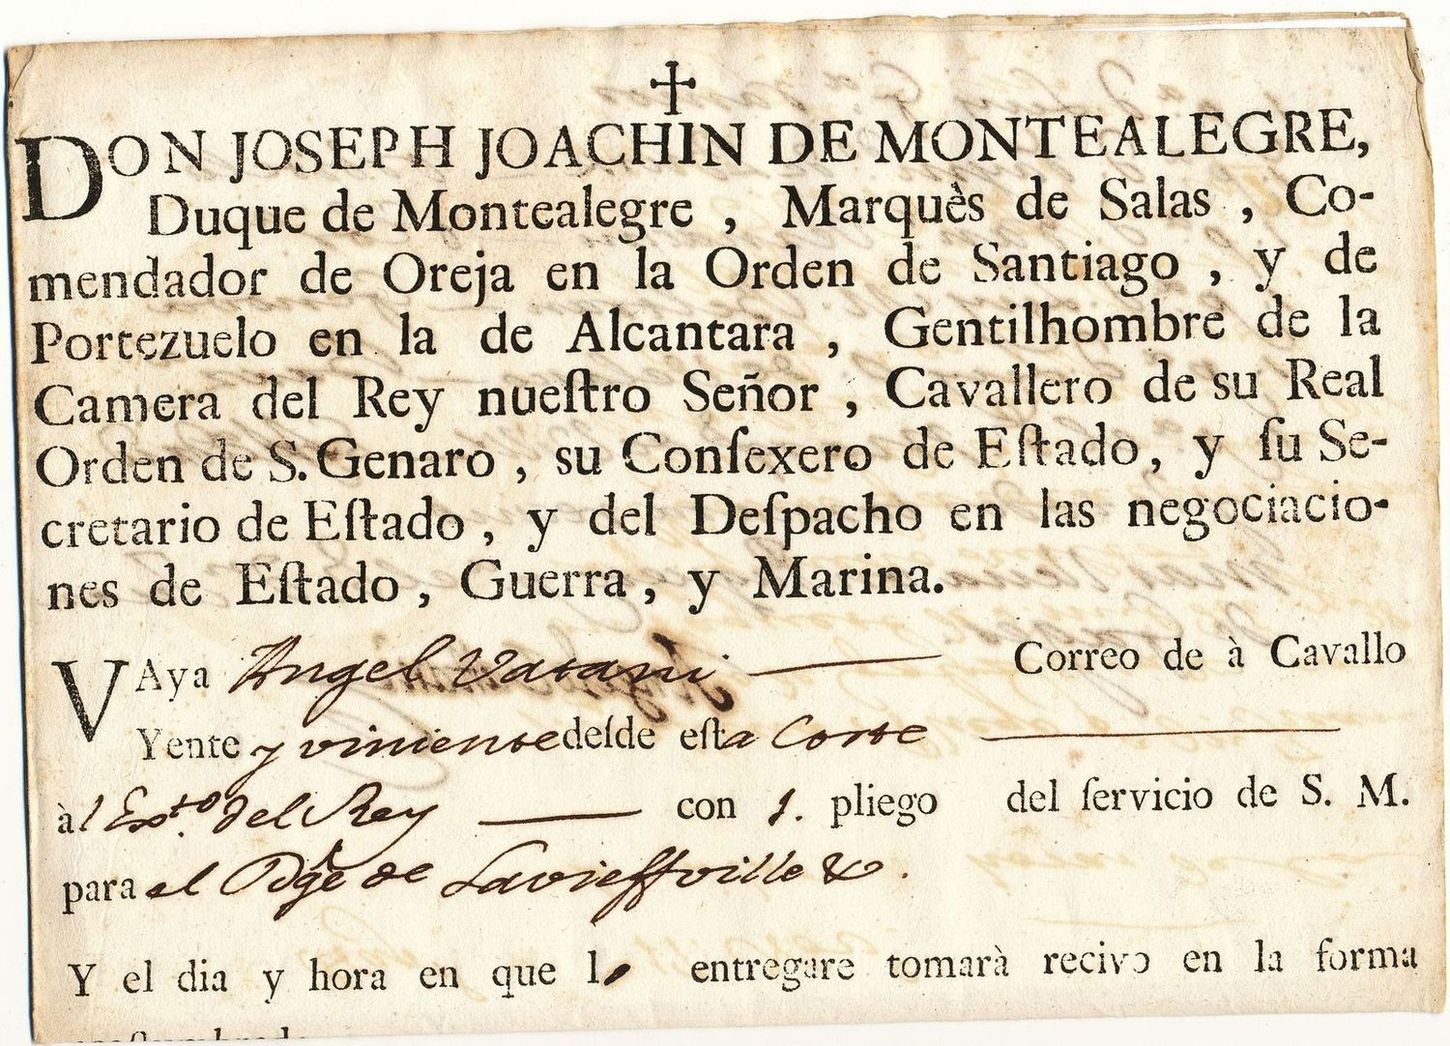 ✝
DON JOSEPH JOACHIN DE MONTEALEGRE,
Duque de Montealegre , Marquès de Salas , Co-
mendador de Oreja en la Orden de Santiago , y de
Portezuelo en la de Alcantara , Gentilhombre de la
Camera del Rey nueſtro Señor , Cavallero de su Real
Orden de S. Genaro , su Conſexero de Eſtado, y ſu Se-
cretario de Eſtado , y del Deſpacho en las negociacio-
nes de Eſtado , Guerra , y Marina.
VAya Angel Vatani Correo de à Cavallo
Yente y viniente deſde eſta Corte
à l Exto. del Rey con 1. pliego del ſervicio de S. M.
para el de Lavieffville &.
Y el dia y hora en que lo entregare tomarà recivo en la forma